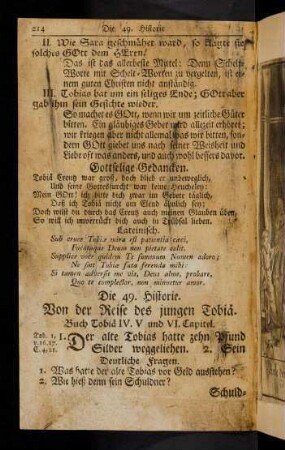 214 Die 49. Historie
II. Wie Sara geschmähet ward, so klagte sie
solches GOtt dem HErrn?
Das ist das allerbeste Mittel: Denn Schelt-
Worte mit Schelt-Worten zu vergelten, ist ei-
nem guten Christen nicht anständig.
III. Tobias bar um ein seliges Ende; GOtt aber
gab ihm sein Gesichte wieder.
So macht es GOtt, wenn wir um zeitliche Güter
bitten. Ein gläubiges Gebet wird allezeit erhöret;
wir kriegen aber nicht allemal was wir bitten, son-
dern GOtt giebet uns nach seiner Weisheit und
Liebe oft was anders, und auch wohl bessers davor.
Gottselige Gedancken.
Tobiä Creutz war groß, doch blieb er unbeweglich,
Und seine Gottesfurcht war keine Heucheley:
Mein GOtt! ich bitte dich zwar im Gebete täglich,
Daß ich Tobiä nicht am Elend ähnlich sey;
Doch willt du durch das Creutz auch meinen Glauben üben,
So will ich unverrückt dich auch in Trübsal lieben.
Lateinisch.
Sub cruce Tobiæ mira est patientia cæci,
Fictaque Deum non pietate colit.
Supplice voce quidem Te summum Numen adoro;
Ne sint Tobiæ fata ferenda mihi:
Si tamen adversis me vis, Deus alme, probare,
Quo te complector, non minuetur amor.
Die 49. Historie.
Von der Reise des jungen Tobiä.
Buch Tobiä IV. V und VI. Capitel.
1. Der alte Tobias hatte zehn Pfund
Silber weggeliehen. 2. Sein
Deutliche Fragen.
1. Was hatte der alte Tobias vor Geld ausstehen?
2. Wie hieß denn sein Schuldner?
Schuld-